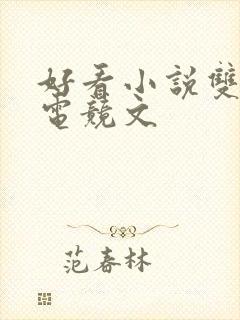 好看小説雙
電競文
范春林